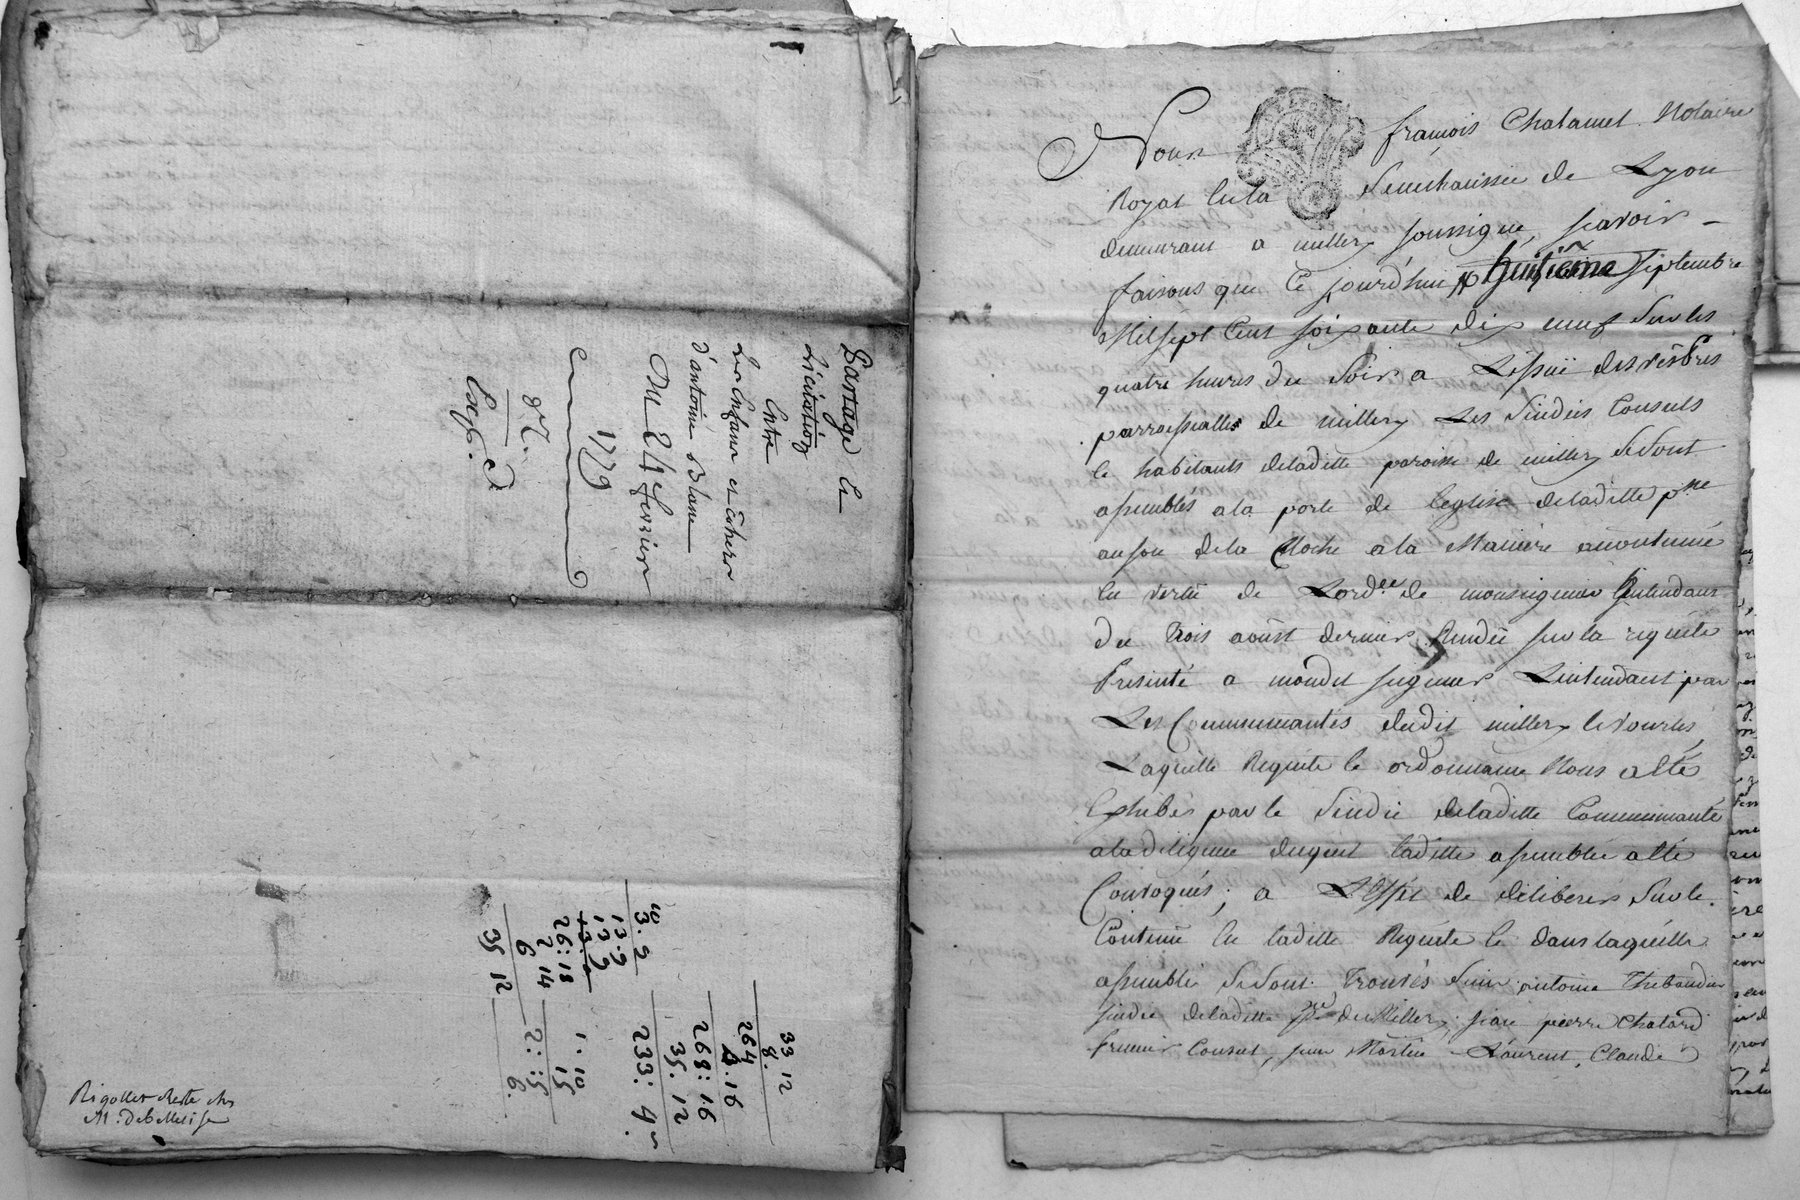 Partage et
Licitation
Entre
Les Enfans et heres
d'antoine Blanc
Du 24 fevrier
1779
Exp.
33 12
8.
264
4.16
268:16
35.12
233: 4
3.9
13.9
13.9
26:18
2 14
6
35 12
1.10
15
2:5
6.
Rigollet Reste chez
M. 
Nous françois Chatamel Notaire
Royal En la Senechaussée de Lyon
demeurant a millery soussigné, scavoir
faisons que Ce jourd'hui huitieme septembre
Mil sept Cent soixante dix neuf Sur les
quatre heures du Soir a L'issuë des vespres
parroissialles de millery Les Sindics Consuls
& habitants de laditte paroisse de millery Se Sont
assemblés a la porte de leglise de laditte psse
au son de la Cloche a la Maniere accoutumé
En vertu de Lord.ce de monseigneur Lintendant
du trois aoust dernier Renduë sur la requête
Presenté a mondit seigneur Lintendant par
Les Communautés dudit millery & vourles,
Laquelle Requête & ordonnance Nous a Eté
Exhibés par le Sindic de laditte Communauté
a la diligence duquel laditte assemblée a Eté
Convoqués, a L'Effet de deliberer Sur le
Contenu En laditte Requête & dans laquelle
assemblé Se Sont trouvés Sieur antoine Thibaudier
sindic de laditte psse de Millery, jean pierre Chatard
premier Consul, jean Martin Laurent, Claude